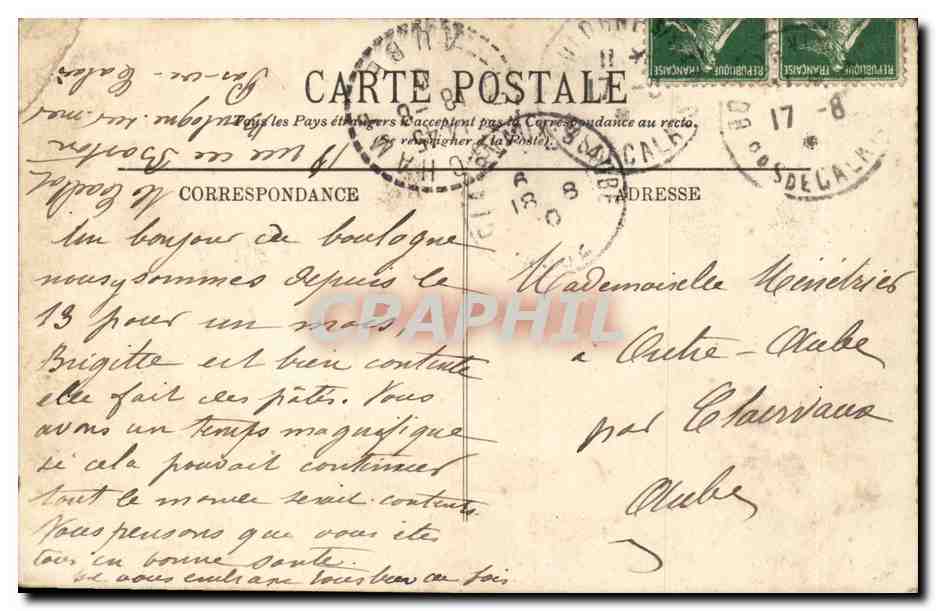 REPUBLIQUE FRANÇAISE
REPUBLIQUE FRANÇAISE
CARTE POSTALE
Tous les Pays étrangers n'acceptent pas la Correspondance au recto.
Se renseigner à la Poste
CORRESPONDANCE
ADRESSE
17 -8
PAS DE CALAIS
AUBE
18 8
Un bonjour de boulogne
nous y sommes depuis le
13 pour un mois,
Brigitte est bien contente
elle fait des pâtés. Nous
avons un temps magnifique
si cela pouvait continuer
tout le monde serait content.
Nous pensons que vous êtes
tous en bonne santé.
Je vous embrasse tous bien des fois
18 rue de
Boulogne sur mer
Pas-de-Calais
Mademoiselle Ménétrier
à Outre-Aube
par Clairvaux
Aube
CPAPHIL